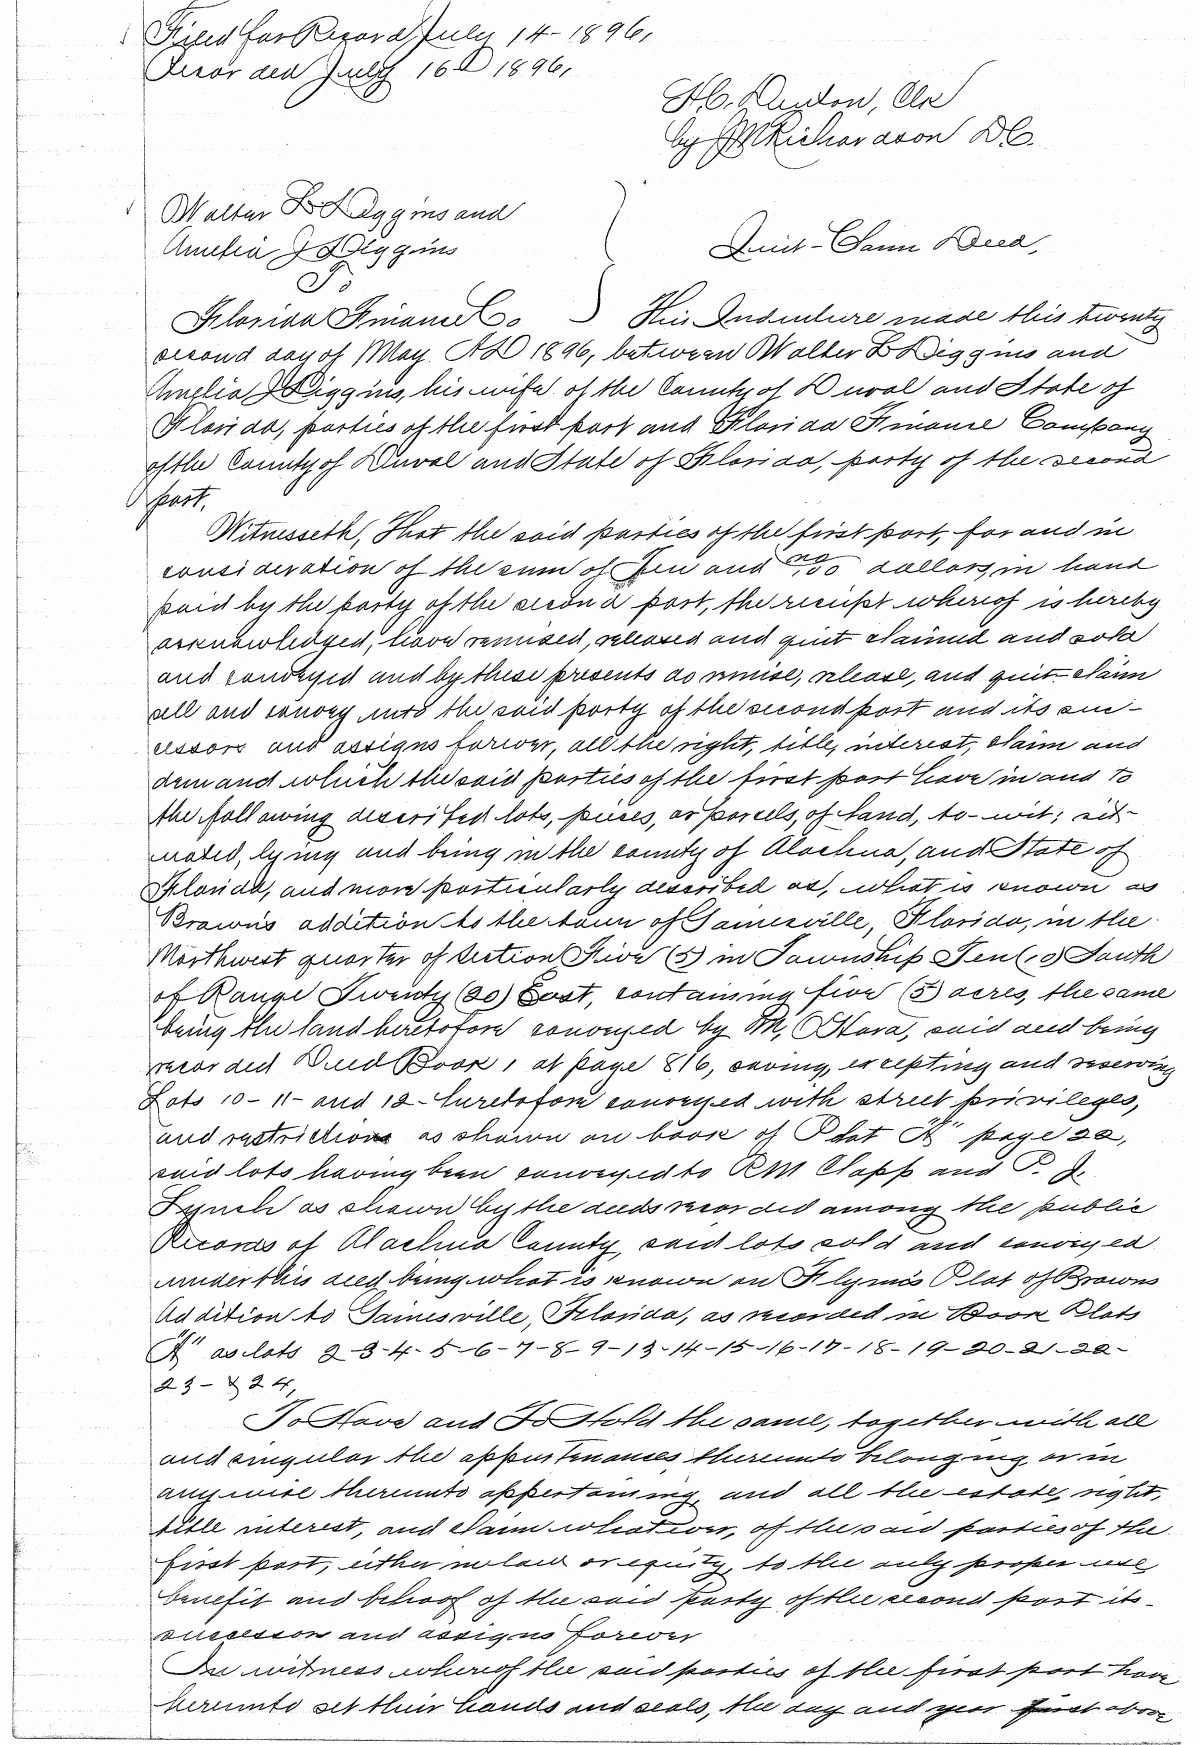 Filed for Record July 14-1896,
Recorded July 16th 1896,
H.C. Denton, Clk
by JM Richardson D.C.
Walter B Diggins and
Amelia J Diggins
To
Quit-Claim Deed,
Florida Finance Co. This Indenture made this twenty
second day of May. AD 1896, between Walter B Diggins and
Amelia J Diggins, his wife of the County of Duval and State of
Florida, parties of the first part and Florida Finance Company
of the County of Duval and State of Florida, party of the second
part,
Witnesseth, That the said parties of the first part, for and in
consideration of the sum of Ten and no/100 dollars, in hand
paid by the party of the second part, the receipt whereof is hereby
acknowledged, have remised, released and quit claimed and sold
and conveyed and by these presents do remise, release, and quit-claim
sell and convey unto the said party of the second part and its suc-
cessors and assigns forever, all the right, title, interest, claim and
demand which the said parties of the first part have in and to
the following described lots, pieces, or parcels, of land, to-wit; sit-
uated, lying and being in the county of Alachua, and State of
Florida, and more particularly described as, what is known as
Brown's addition to the town of Gainesville, Florida, in the
Northwest quarter of section Five (5) in Township Ten (10) South
of Range Twenty (20) East, containing five (5) acres, the same
being the land heretofore conveyed by M, O'Hara, said deed being
recorded Deed Book 1 at page 816, saving, excepting and reserving
Lots 10-11- and 12- heretofore conveyed with street privileges,
and restrictions as shown on book of Plat "A" page 22,
said lots having been conveyed to RM Clapp and P. J.
Lynch as shown by the deeds recorded among the public
Records of Alachua County, said lots sold and conveyed
under this deed being what is known on Flynn's Plat of Browns
Addition to Gainesville, Florida, as recorded in Book Plats
"A" as lots 2-3-4-5-6-7-8-9-13-14-15-16-17-18-19-20-21-22-
23- & 24,
To Have and To Hold the same, together with all
and singular the appurtenances thereunto belonging or in
anywise thereunto appertaining and all the estate, right,
title interest, and claim whatever, of the said parties of the
first part, either in law or equity, to the only proper use,
benefit and behoof of the said party of the second part its
successors and assigns forever
In witness whereof the said parties of the first part have
hereunto set their hands and seals, the day and year first above